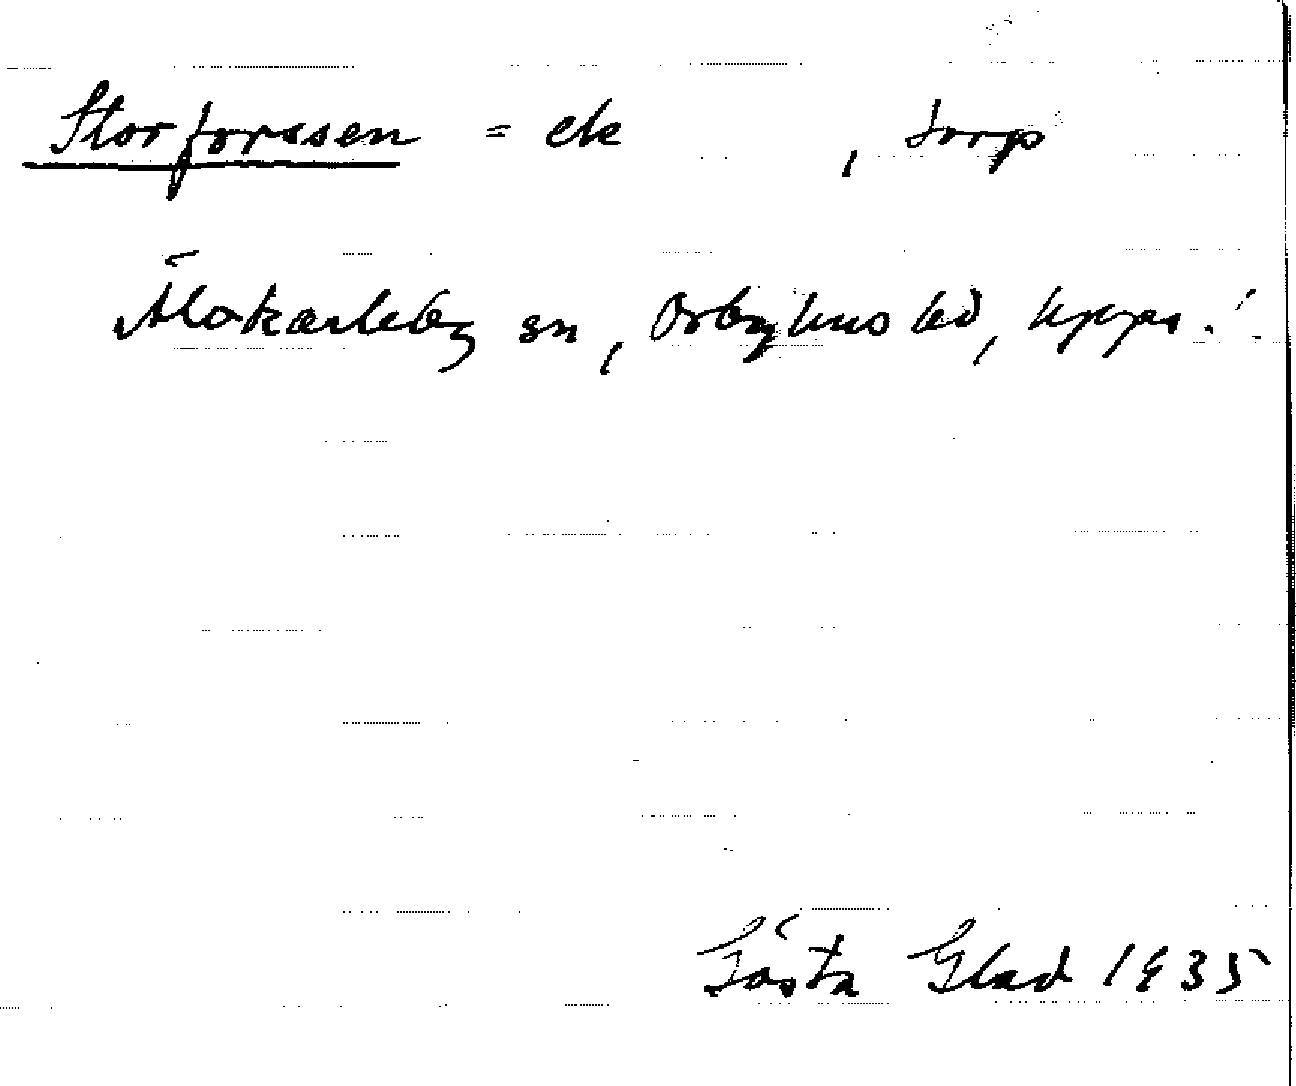 Storforssen = ek , torp
Älvkarleby sn, Örbyhus hd, Upps.
Gösta Glad 1935